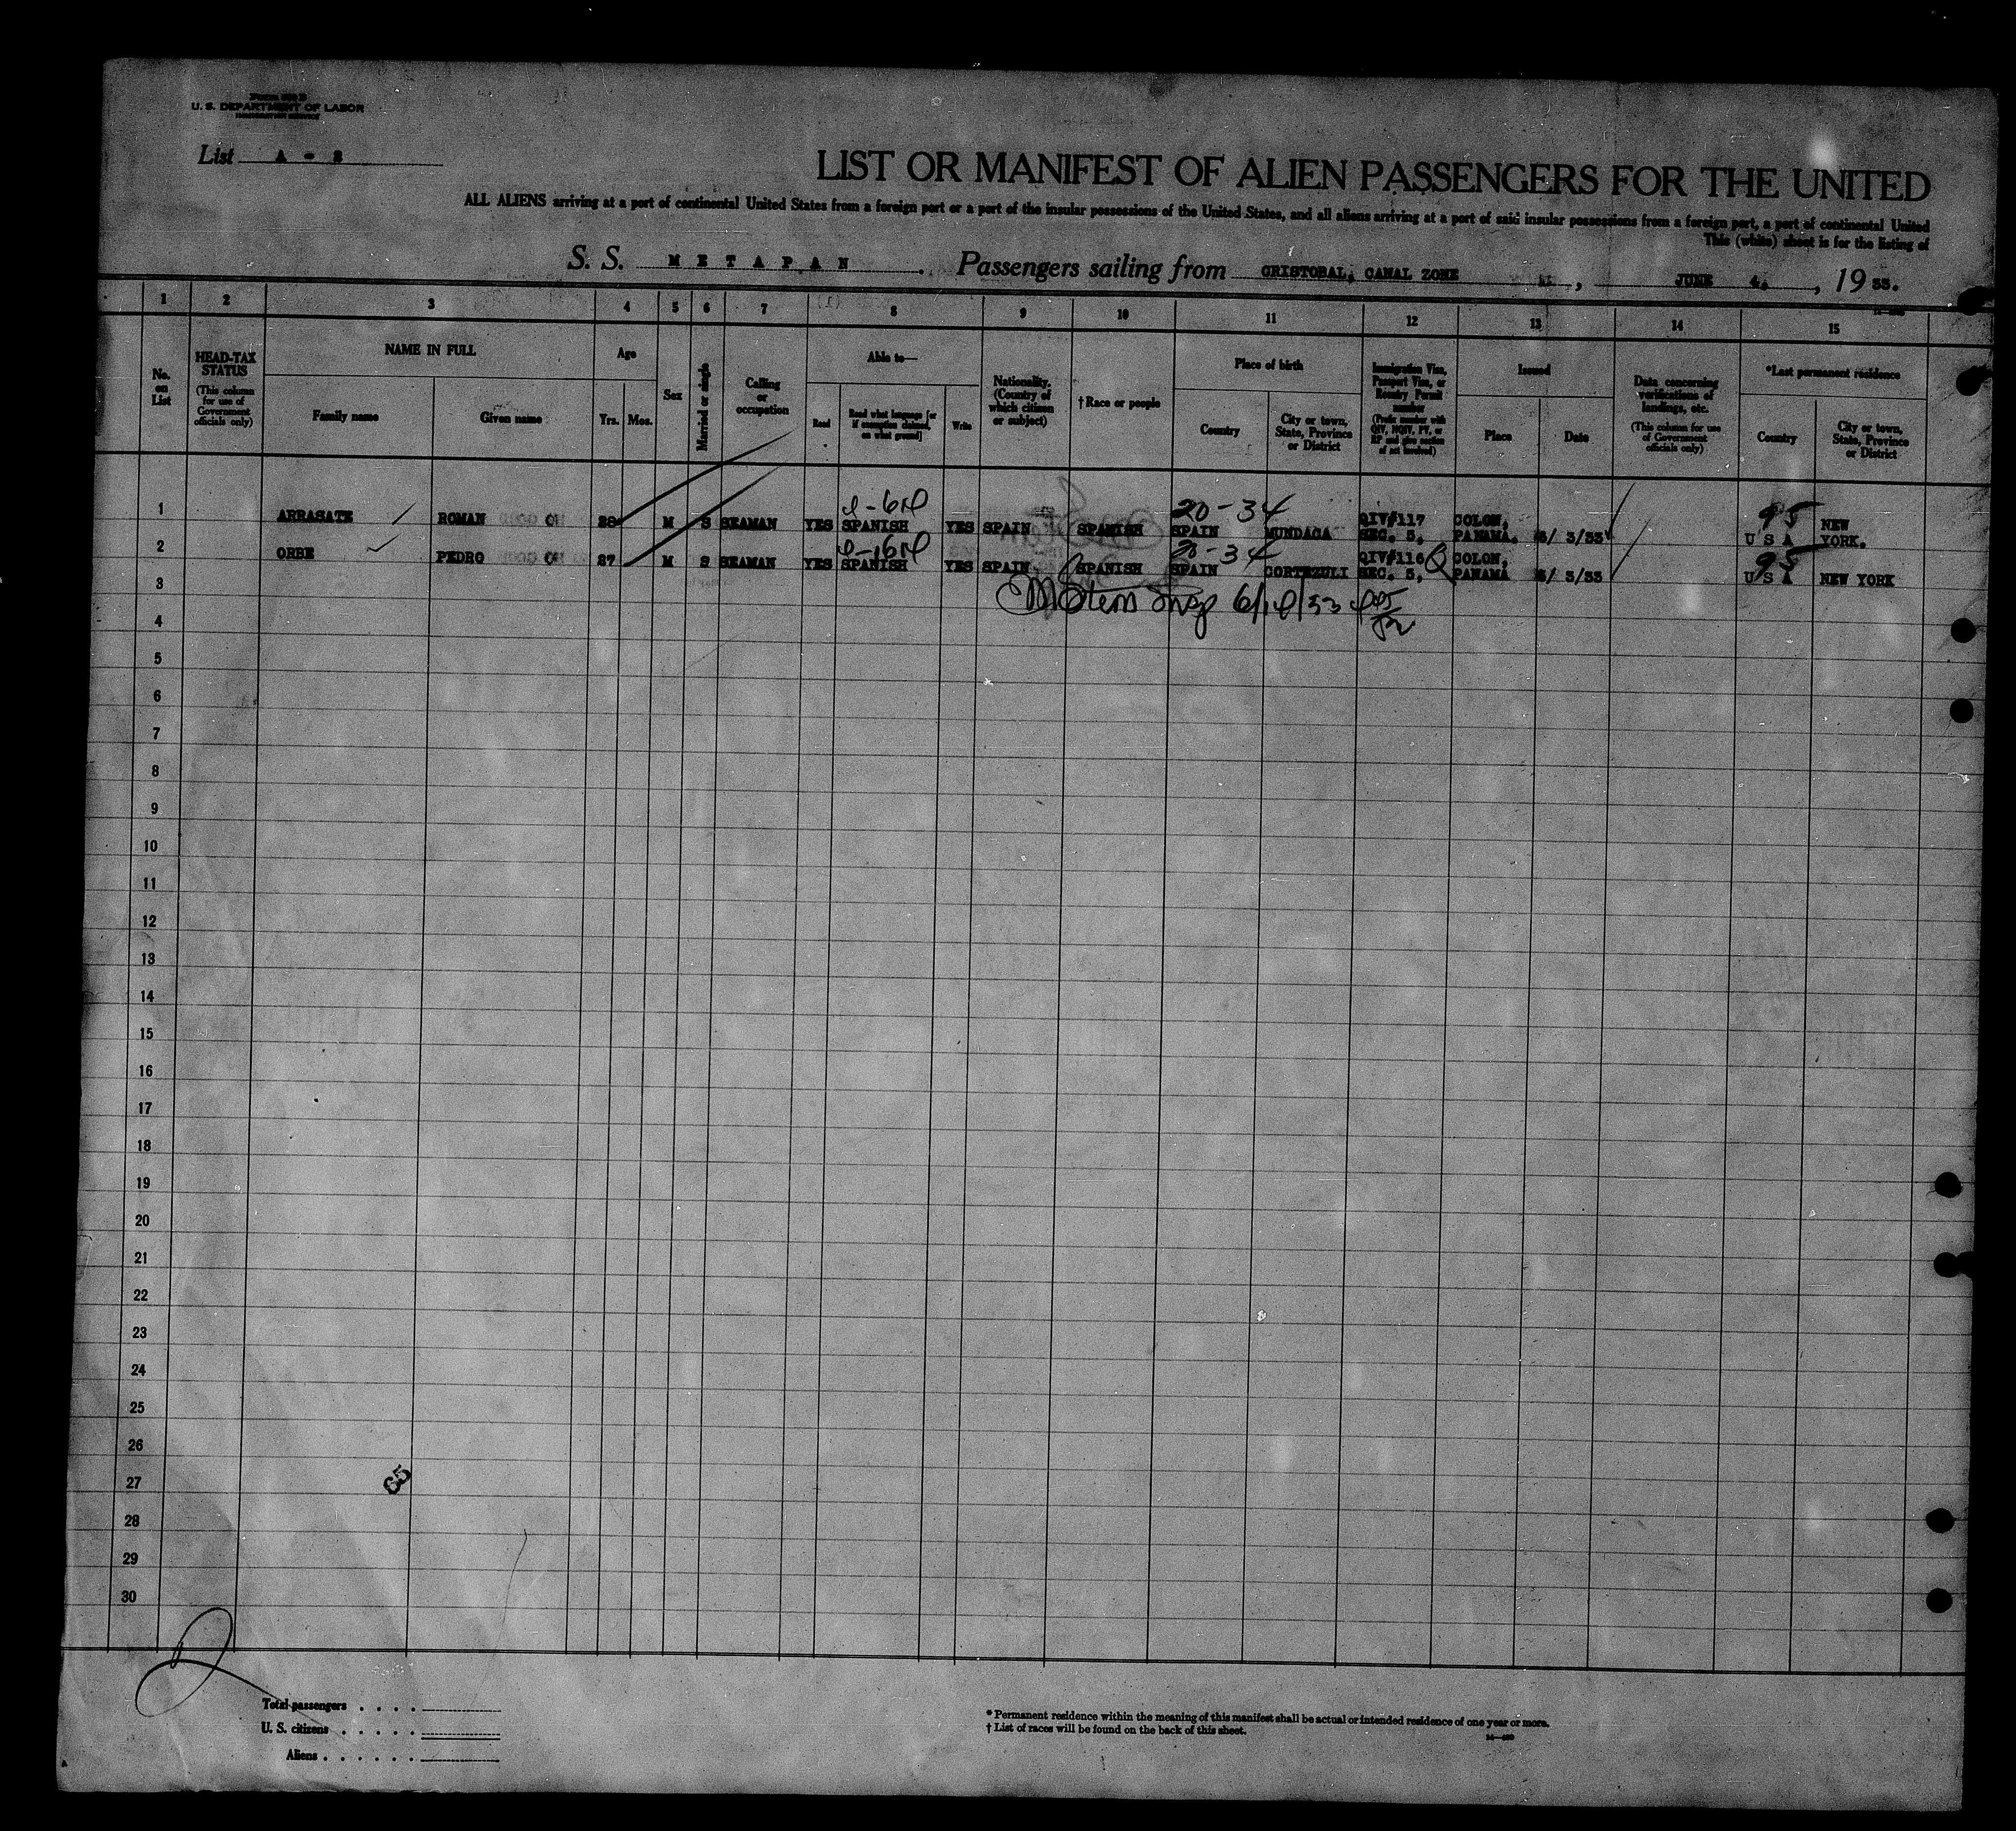 U. S. DEPARTMENT OF LABOR
List A - 2
LIST OR MANIFEST OF ALIEN PASSENGERS FOR THE UNITED
ALL ALIENS arriving at a port of continental United States from a foreign port or a port of the insular possessions of the United States, and all aliens arriving at a port of said insular possessions from a foreign port, a port of continental United
This (white) sheet is for the listing of
S. S. METAPAN Passengers sailing from CRISTOBAL, CANAL ZONE, JUNE 4, 19 33.
1 2 3 4 5 6 7 8 9 10 11 12 13 14 15
No. on List
HEAD-TAX STATUS (This column for use of Government officials only)
NAME IN FULL
Family name
Given name
Age
Yrs. Mos.
Sex
Married or single
Calling or occupation
Able to—
Read
Read what language [or if exemption claimed, on what ground]
Write
Nationality. (Country of which citizen or subject)
†Race or people
Place of birth
Country
City or town, State, Province or District
Immigration Visa, Passport Visa, or Reentry Permit number (Prefix number with QIV, NQIV, PV, or RP and give section of act involved)
Issued
Place
Date
Data concerning verifications of landings, etc. (This column for use of Government officials only)
*Last permanent residence
Country
City or town, State, Province or District
20-34 95
1 ARRASATE ROMAN 28 M S SEAMAN YES SPANISH YES SPAIN SPANISH SPAIN MUNDACA QIV#117 SEC. 5, COLON, PANAMA. 3/33 U S A NEW YORK.
20-34 95
2 ORBE PEDRO 27 M S SEAMAN YES SPANISH YES SPAIN SPANISH SPAIN CORTEZULI QIV#116 SEC. 5, COLON, PANAMA 3/33 U S A NEW YORK
3
4
5
6
7
8
9
10
11
12
13
14
15
16
17
18
19
20
21
22
23
24
25
26
27
28
29
30
65
Total passengers
U. S. citizens
Aliens
* Permanent residence within the meaning of this manifest shall be actual or intended residence of one year or more.
† List of races will be found on the back of this sheet.